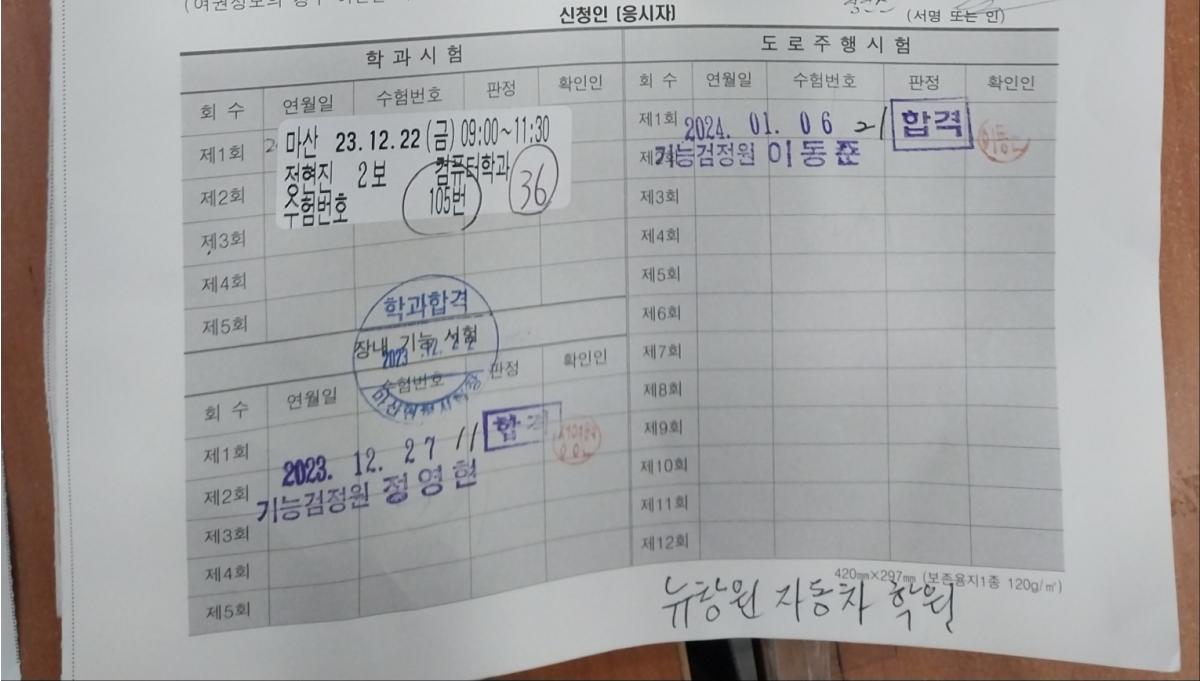 신청인 [응시자]
(서명 또는 인)
학과시험
회 수 연월일 수험번호 판정 확인인
제1회
마산 23.12.22(금) 09:00~11:30
정현진 2보 컴퓨터학과 36
수험번호 105번
제2회
제3회
제4회
제5회
학과합격
장내 기능 시험
2023 .12. 22
회 수 연월일 수험번호 판정 확인인
제1회
2023. 12. 27 11 합격
제2회
기능검정원 정영현
제3회
제4회
제5회
도로주행시험
회 수 연월일 수험번호 판정 확인인
제1회 2024. 01. 06 21 합격
기능검정원 이동준
제3회
제4회
제5회
제6회
제7회
제8회
제9회
제10회
제11회
제12회
420㎜×297㎜ (보존용지1종 120g/㎡)
뉴창원 자동차 학원